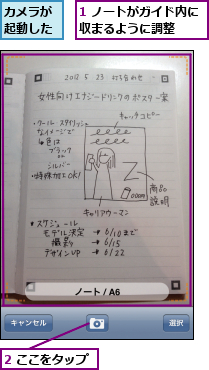 カメラが
起動した
1 ノートがガイド内に
収まるように調整
2012 5 23 打ち合わせ
女性向けエナジードリンクのポスター案
・クール・スタイリッシュ
なイメージで
色は
ブラック
or
シルバー
・特殊加工OK!
キャッチコピー
Z
商品
説明
キャリアウーマン
★スケジュール
モデル決定 → 6/10まで
撮影 → 6/15
デザインUP → 6/22
ノート / A6
キャンセル
選択
2 ここをタップ